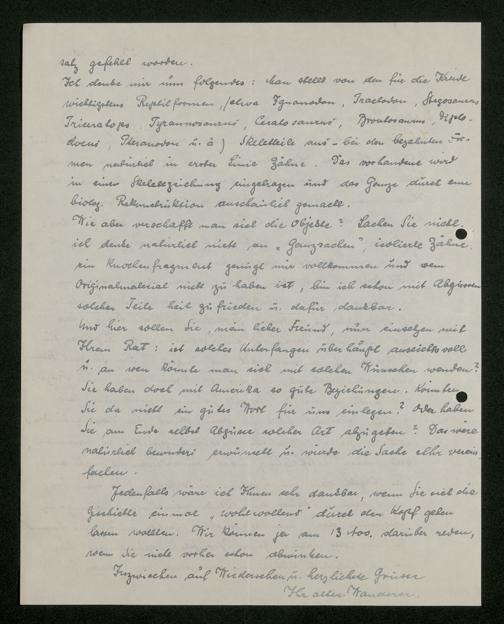 satz gefehlt worden.
Ich denke mir nun folgendes: Man stellt von den für die Kreide
wichtigsten Reptilformen, /etwa Iguanodon, Trachodon, Stegosaurus
Triceratops, Tyrannosaurus, Ceratosaurus, Brontosaurus, Diplo-
docus, Pteranodon u. ä) Skeletteile aus - bei den bezahnten For-
men natürlich in erster Linie Zähne. Das vorhandene wird
in einer Skelettzeichnung eingetragen und das Ganze durch eine
biolog. Rekonstruktion anschaulich gemacht.
Wie aber verschafft man sich die Objekte? Lachen Sie nicht,
ich denke natürlich nicht an "Ganzsachen", isolierte Zähne,
ein Knochenfragment genügt mir vollkommen und wenn
Originalmaterial nicht zu haben ist, bin ich schon mit Abgüssen
solcher Teile heil zufrieden u. dafür dankbar.
Und hier sollen Sie, mein lieber Freund, nun einsetzen mit
Ihrem Rat: ist solches Unterfangen überhaupt aussichtsvoll
u. an wen könnte man sich mit solchen Wünschen wenden?
Sie haben doch mit Amerika so gute Beziehungen. Könnten
Sie da nicht ein gutes Wort für uns einlegen? Oder haben
Sie am Ende selbst Abgüsse solcher Art abzugeben? Das wäre
natürlich besonders erwünscht u. würde die Sache sehr verein-
fachen.
Jedenfalls wäre ich Ihnen sehr dankbar, wenn Sie sich die
Geschichte einmal "wohlwollend" durch den Kopf gehen
lassen wollten. Wir können ja am 13 Nov. darüber reden,
wenn Sie nicht vorher schon abwinken.
Inzwischen auf Wiedersehen u. herzlichste Grüsse
Ihr alter Wanderer.